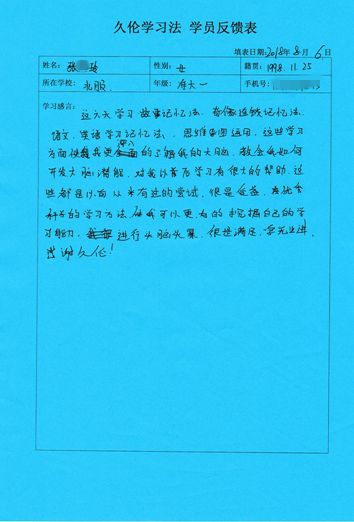 久伦学习法 学员反馈表
填表日期:2018年8月6日
姓名: 性别: 女 籍贯: 1998.11.25
所在学校: 礼服 年级: 准大一 手机号:
学习感言:
这六天学习 故事记忆法、奇像连锁记忆法、
语文、英语学习记忆法、思维导图运用，这些学习
方面使我更深入的了解我的大脑，教会我如何
开发大脑潜能，对我以后学习有很大的帮助，这
些都是以前从未有过的尝试，很是受益，有优秀
的学习方法，使我可以更有的把握自己的学
习能力，进行头脑，很想满足，学无止境，
感谢久伦！